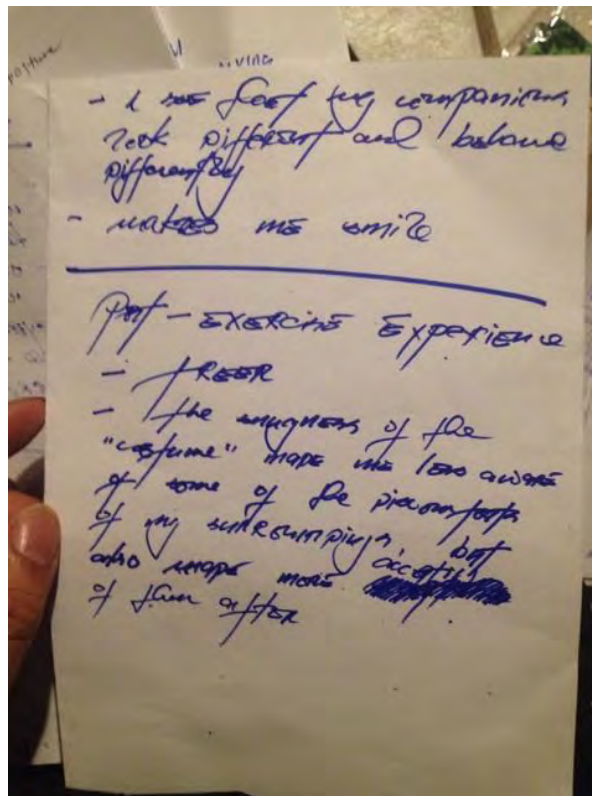 posture
VING
- I see that my companions
look different and balance
differently
- makes me smile
Post - EXERCISE Experience
- FREER
- the snugness of the
"costume" made me less aware
of some of the discomforts
of my surroundings but
also made more accepting
of them after